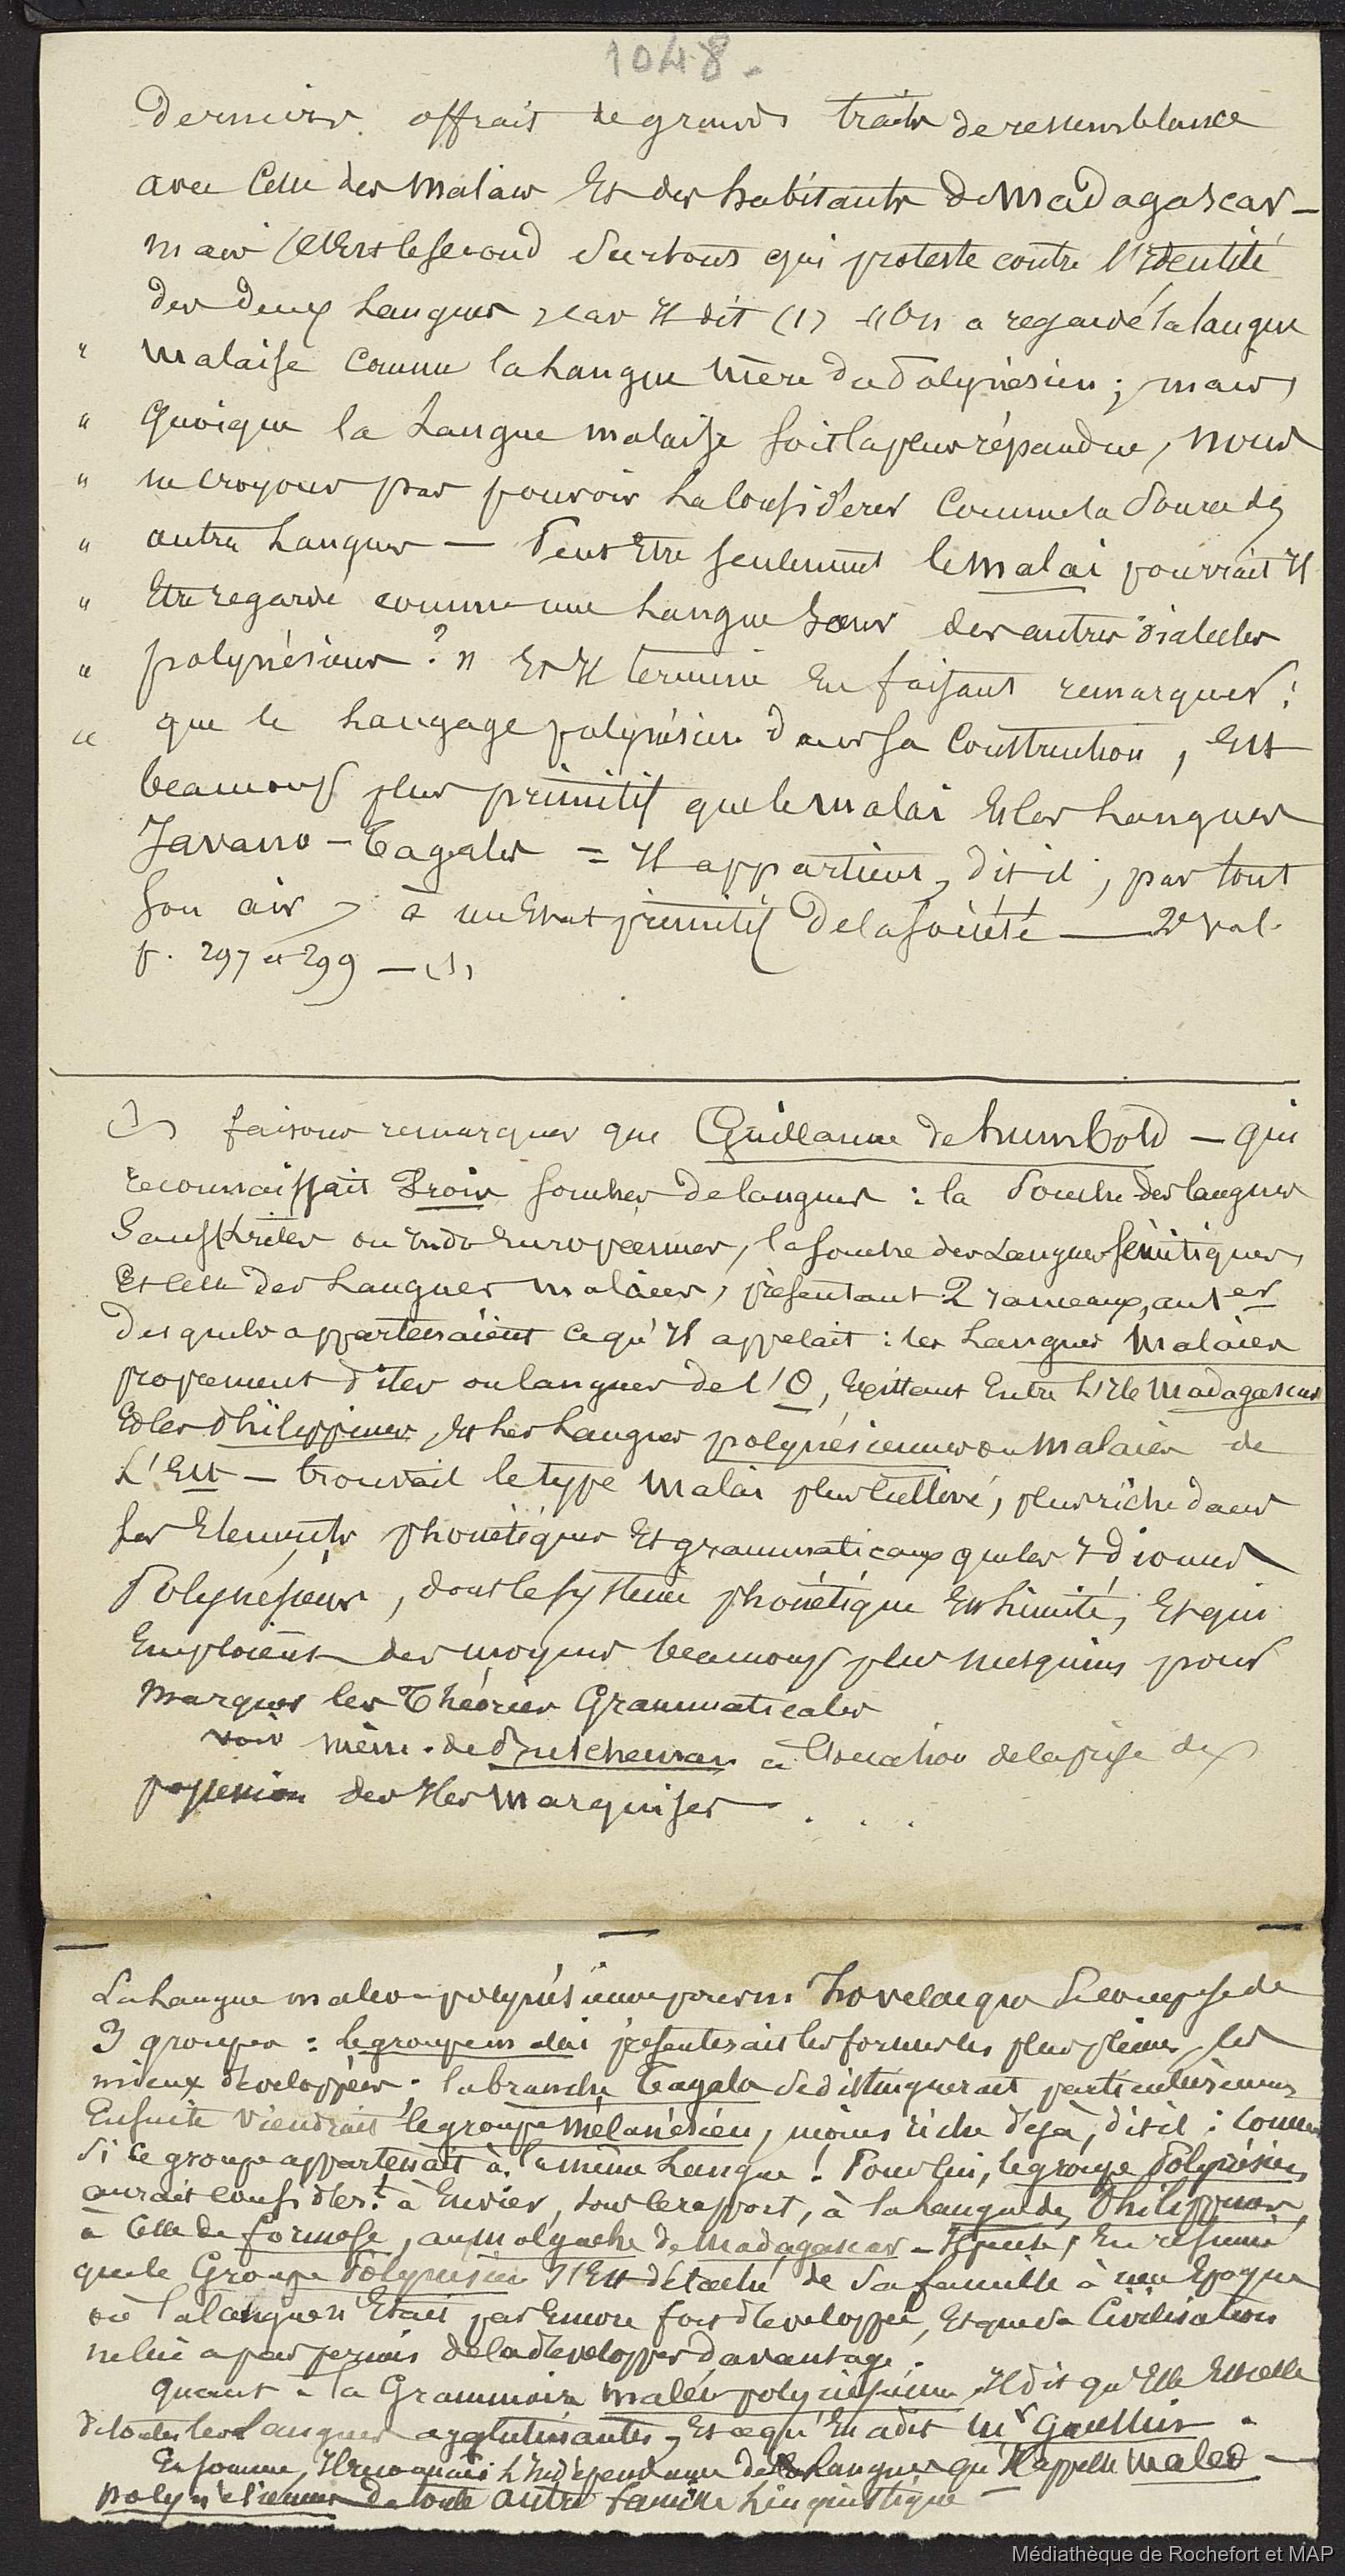 1048.
Derniers offrait de grands traits de ressemblance
avec celle des Malais Et des habitants de Madagascar –
mais c'Est le second surtout qui proteste contre l'Identité
des deux Langues ; car Il dit (1) « On a regardé la langue
" Malaise comme la Langue Mère du Polynésien ; mais,
" quoique la Langue malaise soit la plus répandue, nous
" ne croyons pas pouvoir La Considérer Comme la Source des
" autres Langues — Peut Etre seulement le Malai pourrait Il
" Etre regardé comme une Langue Sœur des autres dialectes
" polynésiens ? » Et Il termine En faisant remarquer :
" que le Langage polynésien dans sa Construction, Est
beaucoup plus primitif que le malai Et les Langues
Javano – Tagales = Il appartient, dit il, par tout
son air, à un Etat primitif de la Société — 2e vol.
p. 297 et 299 — (1)
(1) faisons remarquer que Guillaume de humbold – qui
reconnaissait Trois souches de langues : la Souche des langues
Sanskrites ou Indo Européennes, la souche des Langues sémitiques,
Et celle des Langues malaies, présentant 2 rameaux, au 1er
desquels appartenaient ce qu'Il appelait : les Langues Malaies
proprement dites ou langues de l'O, Existant Entre L'Ile Madagascar
Et les Philippines, Et Les Langues polynésiennes ou Malaies de
L'Est – trouvait le type Malai plus cultivé, plus riche dans
ses Eléments phonétiques Et grammaticaux que les Idiomes
Polynésiens, dont le système phonétique Est Limité, Et qui
Emploient des moyens beaucoup plus mesquins pour
Marquer les Théories Grammaticales
voir mém. de Buschmann à l'occasion de la prise de
possession des Iles Marquises . . .
La Langue maleo-polynésienne pour mr Hovelacque Se compose de
3 groupes : Le groupe malai présenterait les formes les plus pleines, les
mieux développées. la branche Tagala se distinguerait particulièrement
Ensuite viendrait le groupe Mélanésien, moins riche déjà, dit il : comme
Si ce groupe appartenait à la même Langue ! Pour lui, le groupe Polynésien
aurait considért à Envier, sous ce rapport, à la Langue des Philippines,
à Celle de formose, au malgache de Madagascar – Il pense, En résumé
que le Groupe Polynésien s'Est détaché de Sa famille à une Epoque
où la langue n'Etait pas Encore fort développée, Et que sa Civilisation
ne lui a pas permis de la développer davantage.
Quant à la Grammaire maleo polynésienne, Il dit qu'Elle Est celle
de toutes les Langues agglutinantes, Et ce qu'En a dit Mr Gaussin.
En somme, Il reconnait L'Indépendance des Langues qu'Il appelle Maleo –
polynésiennes de toute autre famille Linguistique
Médiathèque de Rochefort et MAP